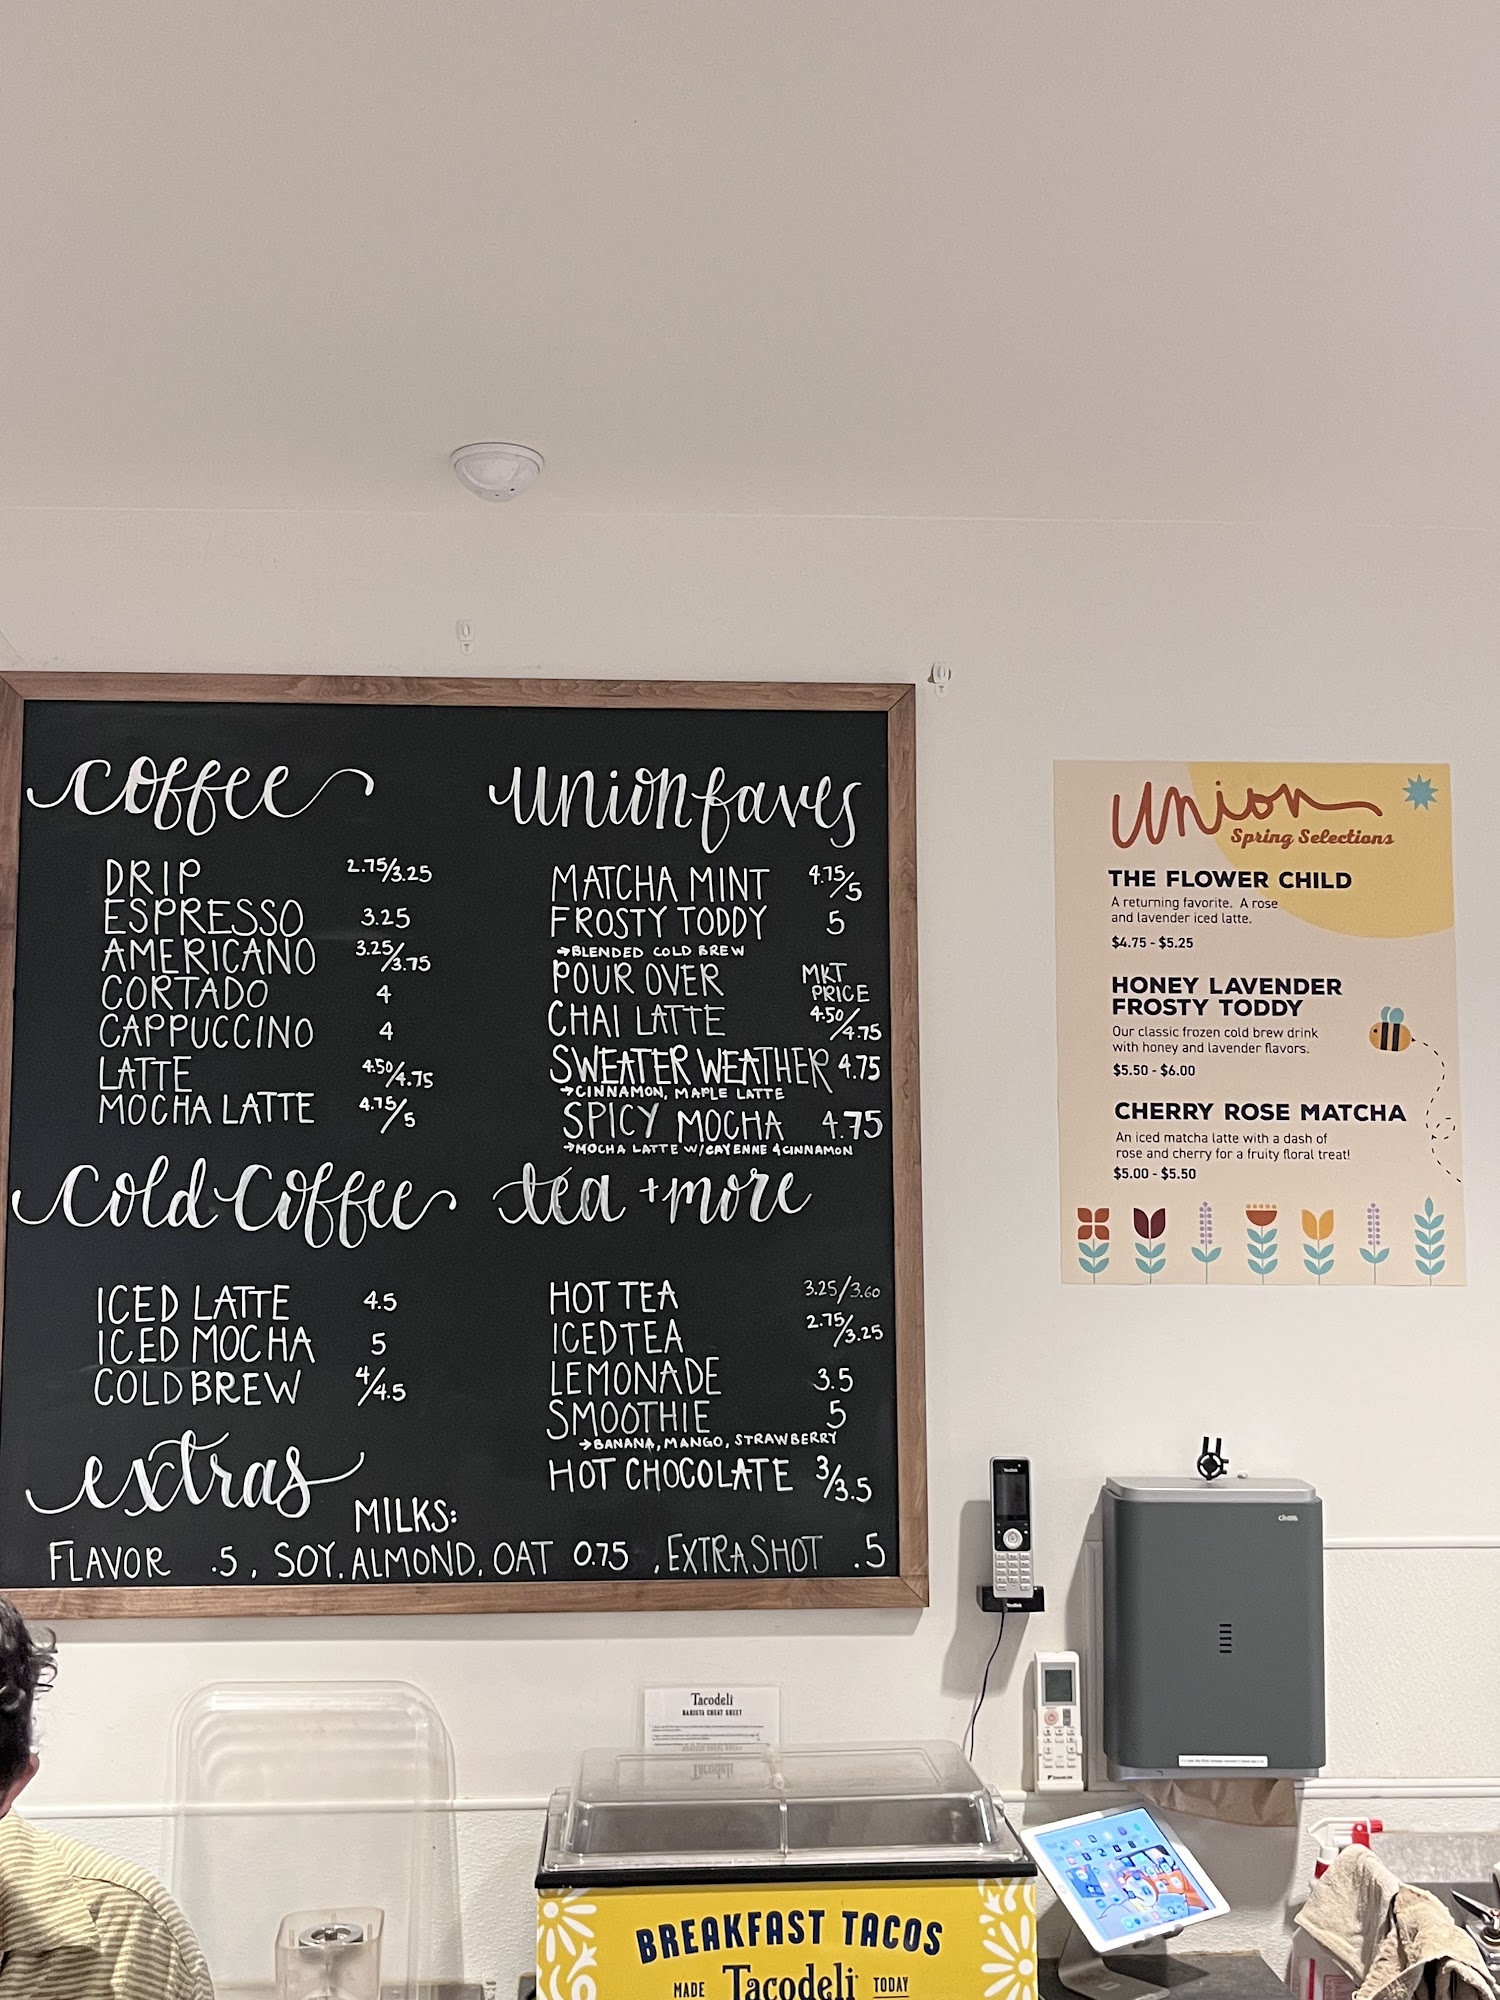 coffee
DRIP 2.75/3.25
ESPRESSO 3.25
AMERICANO 3.25/3.75
CORTADO 4
CAPPUCCINO 4
LATTE 4.50/4.75
MOCHA LATTE 4.75/5
cold coffee
ICED LATTE 4.5
ICED MOCHA 5
COLD BREW 4/4.5
union faves
MATCHA MINT 4.75/5
FROSTY TODDY 5
→BLENDED COLD BREW
POUR OVER MKT
PRICE
CHAI LATTE 4.50/4.75
SWEATER WEATHER 4.75
→CINNAMON, MAPLE LATTE
SPICY MOCHA 4.75
→MOCHA LATTE W/CAYENNE & CINNAMON
tea + more
HOT TEA 3.25/3.60
ICED TEA 2.75/3.25
LEMONADE 3.5
SMOOTHIE 5
→BANANA, MANGO, STRAWBERRY
HOT CHOCOLATE 3/3.5
extras
MILKS:
FLAVOR .5, SOY, ALMOND, OAT 0.75, EXTRA SHOT .5
Union
Spring Selections
THE FLOWER CHILD
A returning favorite. A rose
and lavender iced latte.
$4.75 - $5.25
HONEY LAVENDER
FROSTY TODDY
Our classic frozen cold brew drink
with honey and lavender flavors.
$5.50 - $6.00
CHERRY ROSE MATCHA
An iced matcha latte with a dash of
rose and cherry for a fruity floral treat!
$5.00 - $5.50
Yealink
Yealink
DAIKIN
Tacodeli
BARISTA CHEAT SHEET
BREAKFAST TACOS
MADE Tacodeli TODAY